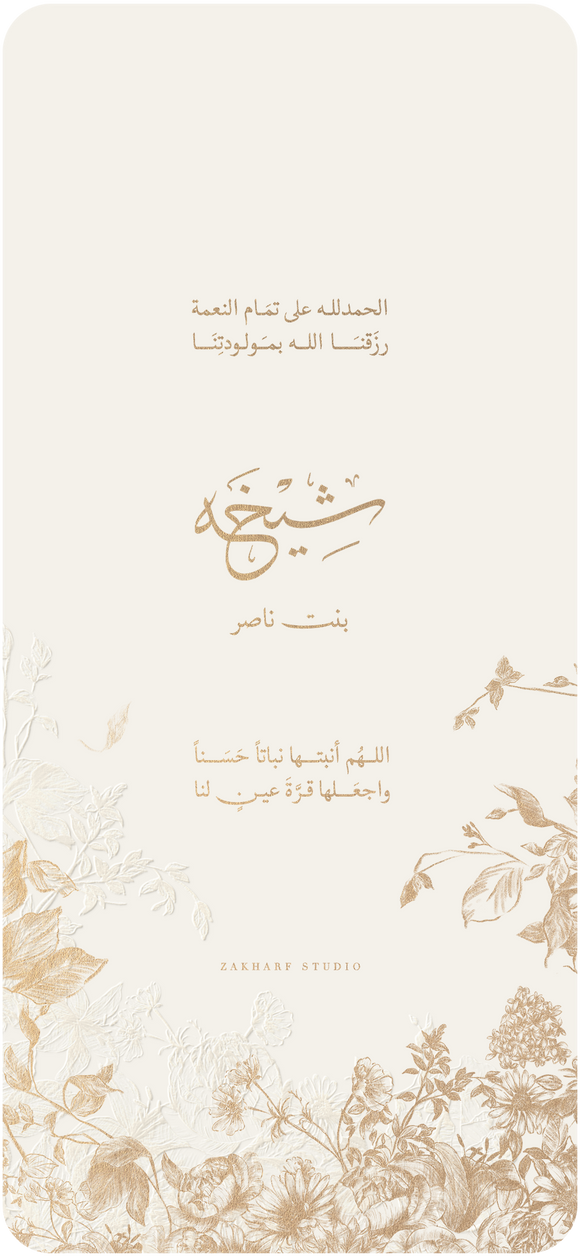 الحمدلله على تمَام النعمة
رزَقنَا الله بمَولودتِنَا
شيخه
بنت ناصر
اللهُم أنبتها نباتاً حَسَناً
واجعَلها قرَّةَ عينٍ لنا
ZAKHARF STUDIO